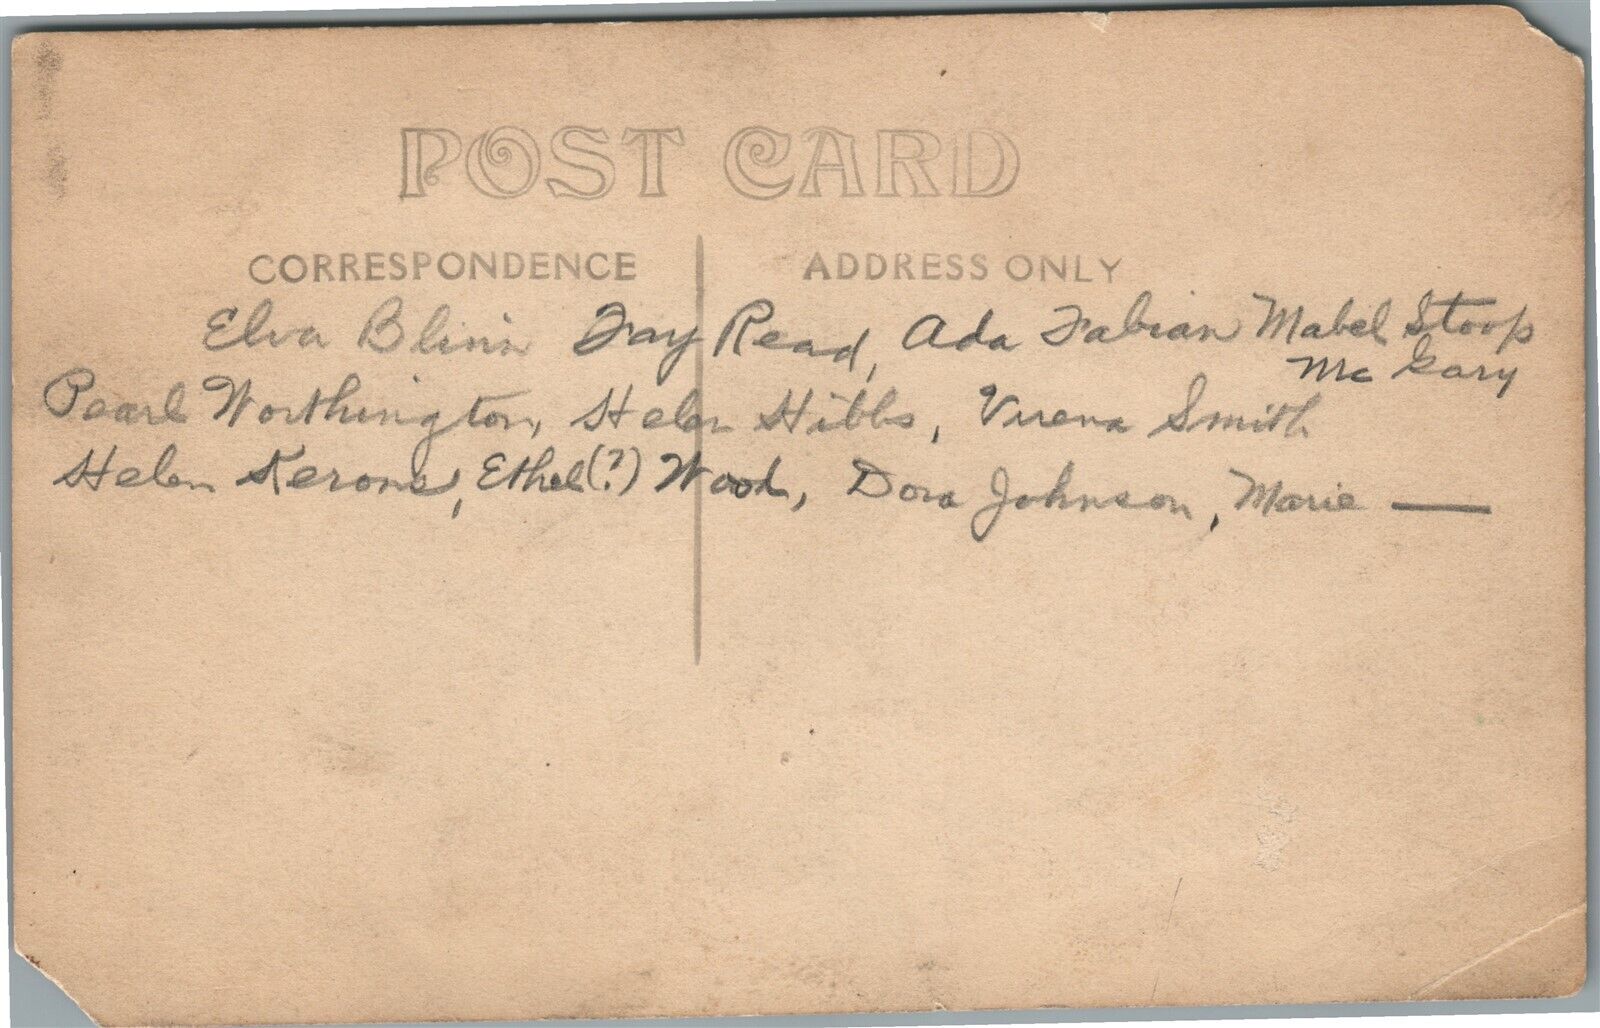 POST CARD
CORRESPONDENCE ADDRESS ONLY
Elva Blinn Fay Read, Ada Fabian Mabel Stoops
Mc Gary
Pearl Worthington, Helen Hibbs, Verena Smith
Helen Kerons, Ethel(?) Wood, Dora Johnson, Marie —